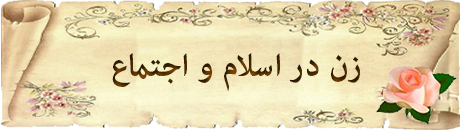 زن در اسلام و اجتماع